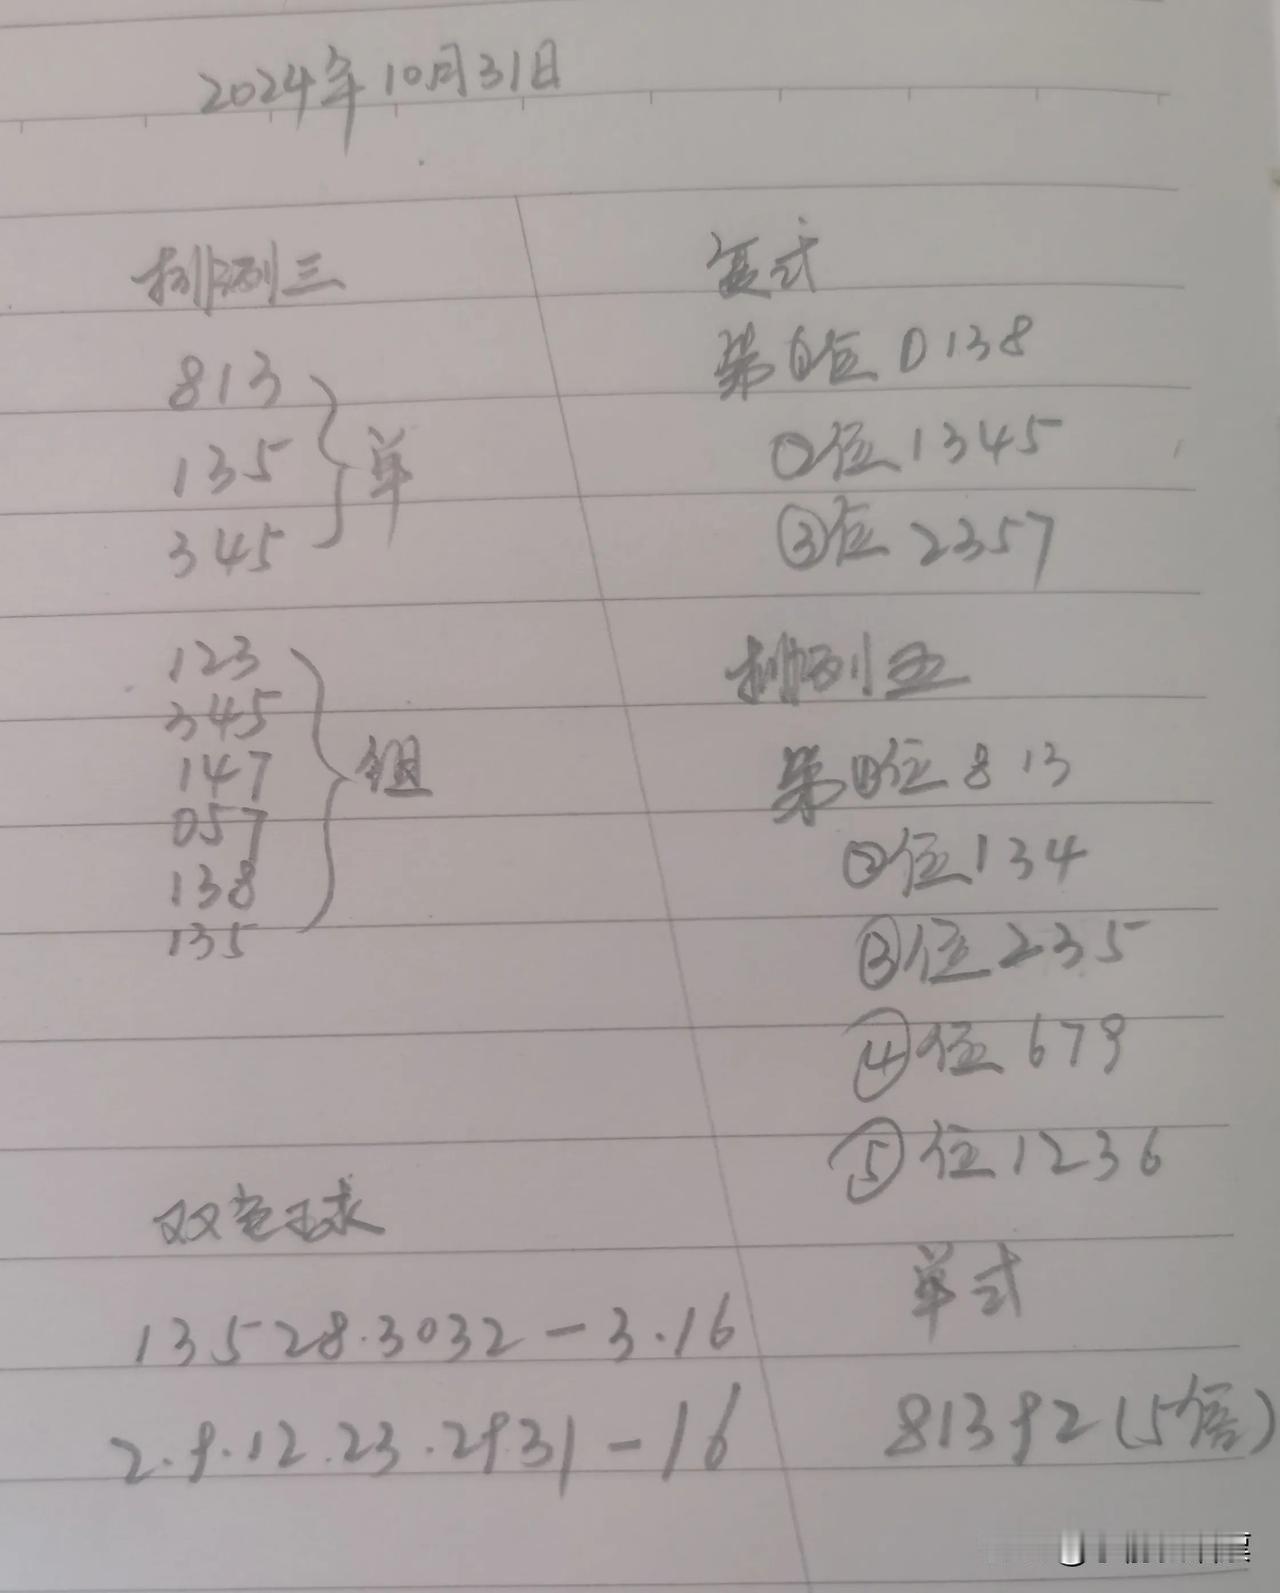 2024年10月31日
排列三
813
135
345
单
123
345
147
057
138
135
组
双色球
1 3 5 28.30 32-3.16
2.9.12.23.29 31-16
复式
第①位 0138
②位 1345
③位 2357
排列五
第①位 813
②位 134
③位 235
④位 679
⑤位 1236
单式
81392(5倍)